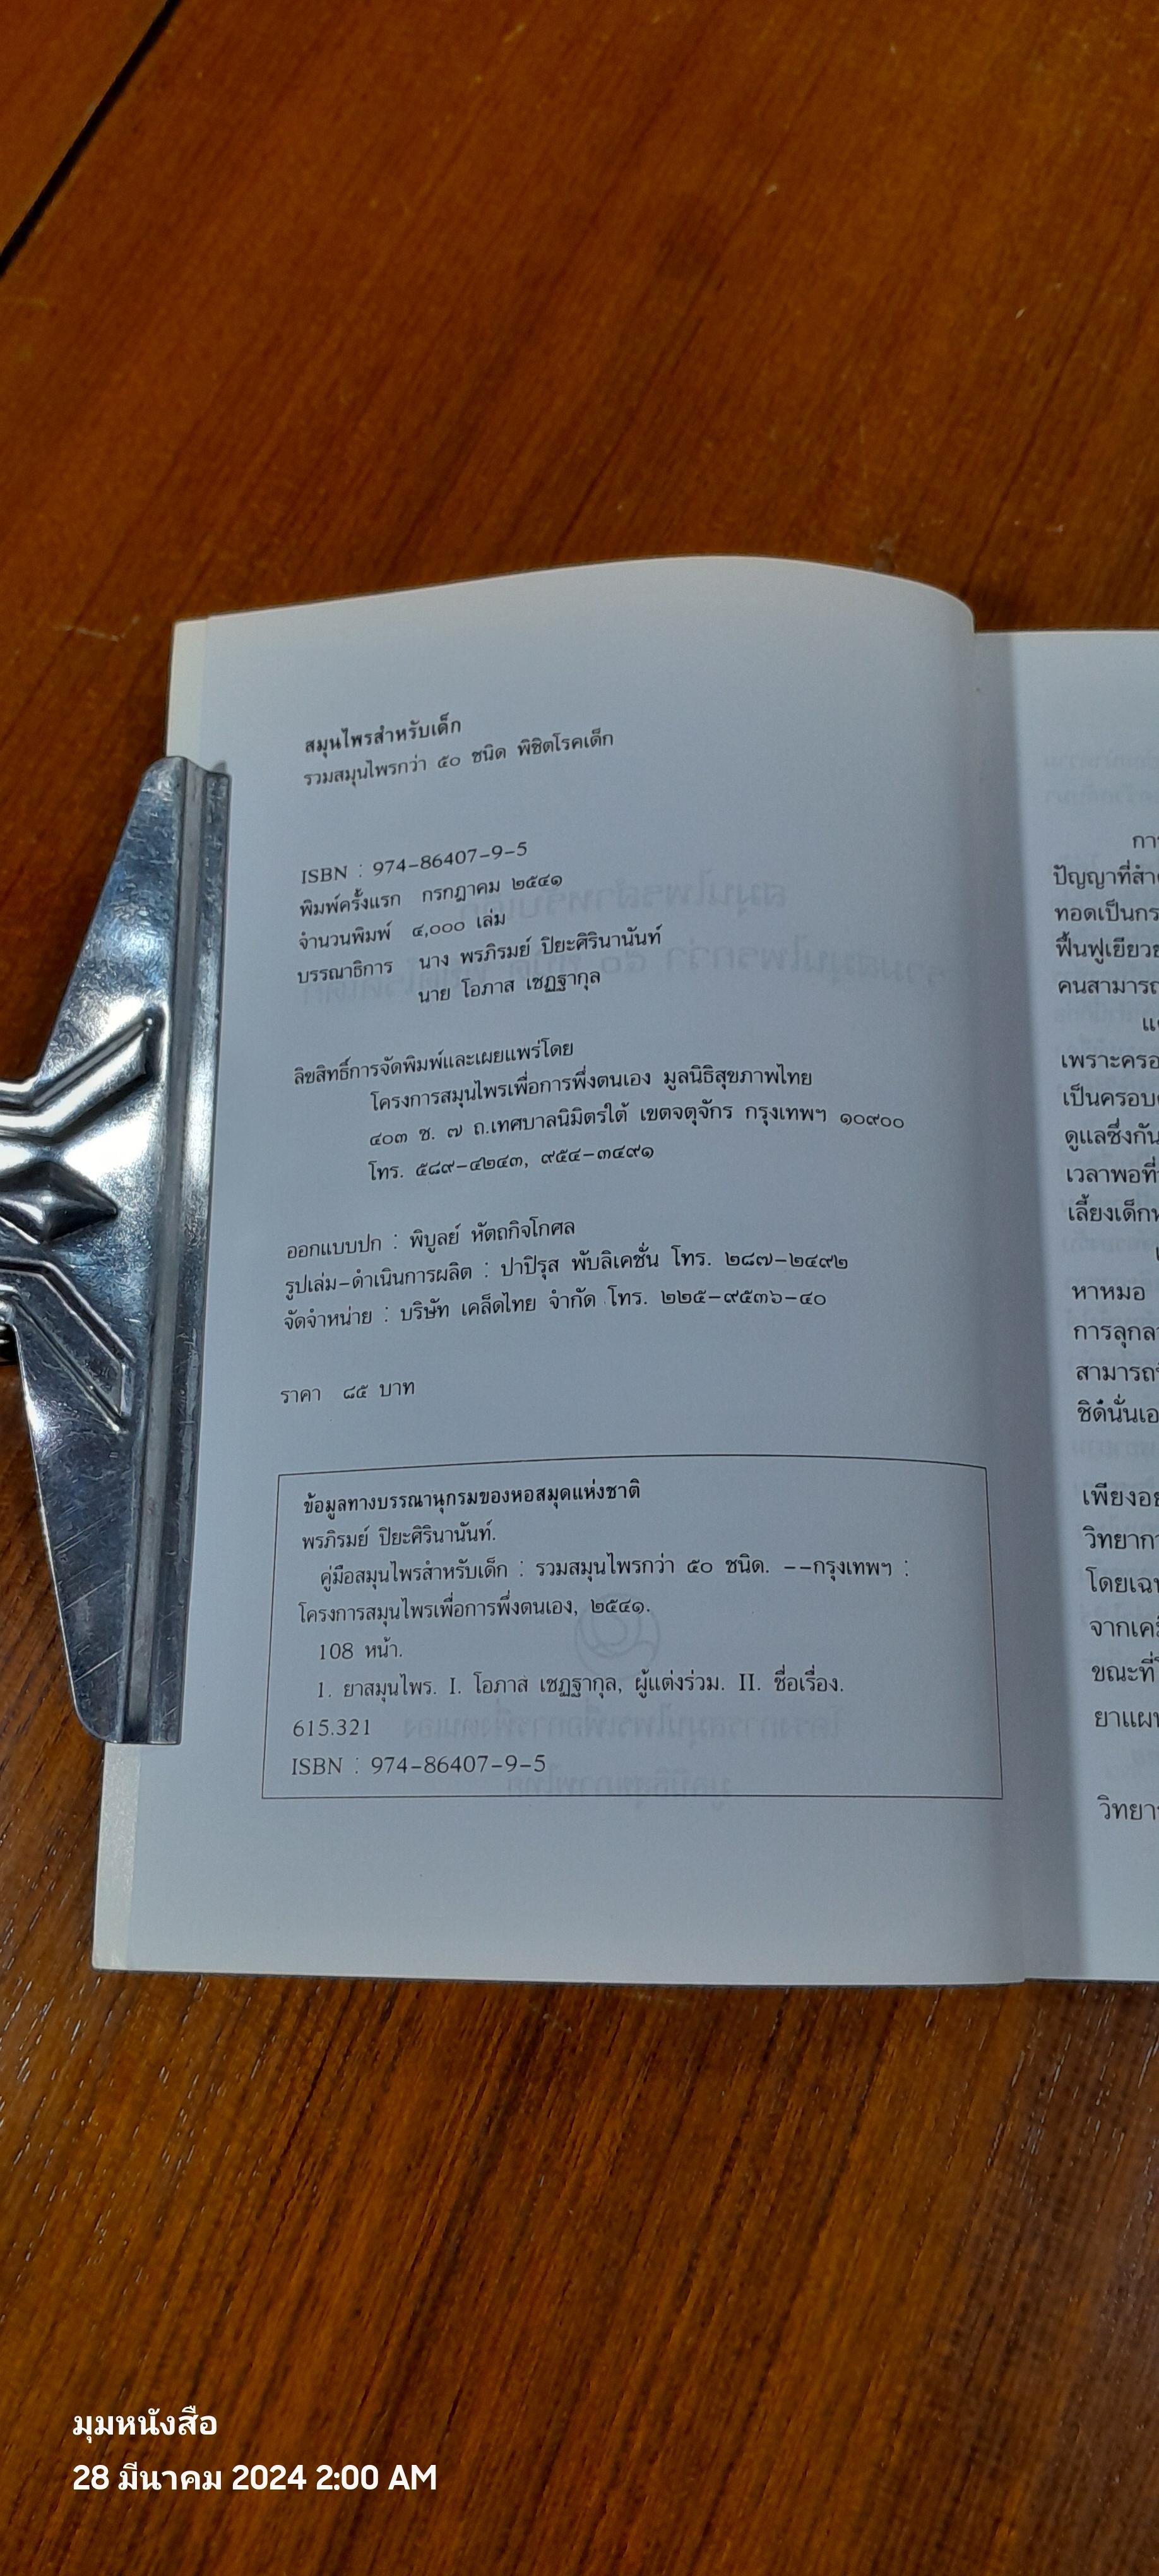 สมุนไพรสำหรับเด็ก
รวมสมุนไพรกว่า ๕๐ ชนิด พิชิตโรคเด็ก
ISBN : 974-86407-9-5
พิมพ์ครั้งแรก กรกฎาคม ๒๕๔๑
จำนวนพิมพ์ ๔,๐๐๐ เล่ม
บรรณาธิการ นาง พรภิรมย์ ปิยะศิรินานันท์
นาย โอภาส เชฏฐากุล
ลิขสิทธิ์การจัดพิมพ์และเผยแพร่โดย
โครงการสมุนไพรเพื่อการพึ่งตนเอง มูลนิธิสุขภาพไทย
๔๐๓ ซ. ๗ ถ.เทศบาลนิมิตรใต้ เขตจตุจักร กรุงเทพฯ ๑๐๙๐๐
โทร. ๕๘๙-๔๒๔๓, ๙๕๔-๓๔๙๑
ออกแบบปก : พิบูลย์ หัตถกิจโกศล
รูปเล่ม-ดำเนินการผลิต : ปาปิรุส พับลิเคชั่น โทร. ๒๘๗-๒๔๙๒
จัดจำหน่าย : บริษัท เคล็ดไทย จำกัด โทร. ๒๒๕-๙๕๓๖-๔๐
ราคา ๘๕ บาท
ข้อมูลทางบรรณานุกรมของหอสมุดแห่งชาติ
พรภิรมย์ ปิยะศิรินานันท์.
คู่มือสมุนไพรสำหรับเด็ก : รวมสมุนไพรกว่า ๕๐ ชนิด. --กรุงเทพฯ :
โครงการสมุนไพรเพื่อการพึ่งตนเอง, ๒๕๔๑.
108 หน้า.
1. ยาสมุนไพร. I. โอภาส เชฏฐากุล, ผู้แต่งร่วม. II. ชื่อเรื่อง.
615.321
ISBN : 974-86407-9-5
ปัญญาที่สำ
ทอดเป็นกร
ฟื้นฟูเยียว
คนสามารถ
เพราะครอ
เป็นครอบ
ดูแลซึ่งกัน
เวลาพอที่
เลี้ยงเด็ก
หาหมอ
การลุกล
สามารถ
ชิดนั่นเอ
เพียงอย
วิทยาก
โดยเฉพ
จากเค
ขณะที่
ยาแผ
วิทยา
มุมหนังสือ
28 มีนาคม 2024 2:00 AM